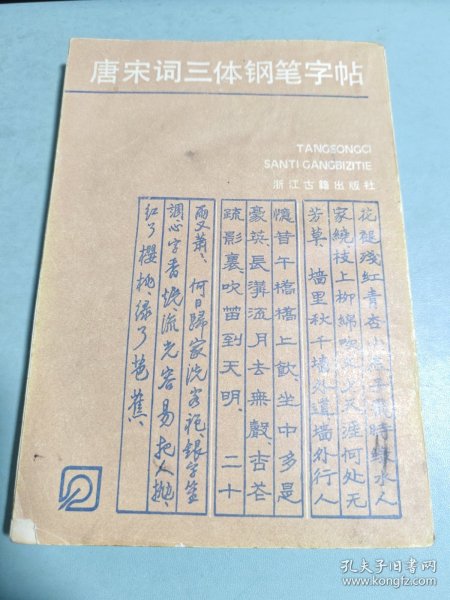 唐宋词三体钢笔字帖
TANGSONGCI
SANTI GANGBIZITIE
浙江古籍出版社
花褪残红青杏小燕子飞时绿水人
家繞枝上柳綿吹又少天涯何处无
芳草墙里秋千墙外道墙外行人
憶昔午橋橋上飲、坐中多是
豪英、長溝流月去無聲、杏花
疏影裏、吹笛到天明、二十
雨又蕭、何日歸家洗客袍銀字笙
調心字香燒、流光容易把人拋、
红了櫻桃、绿了芭蕉、
孔夫子旧书网
www.kongfz.com